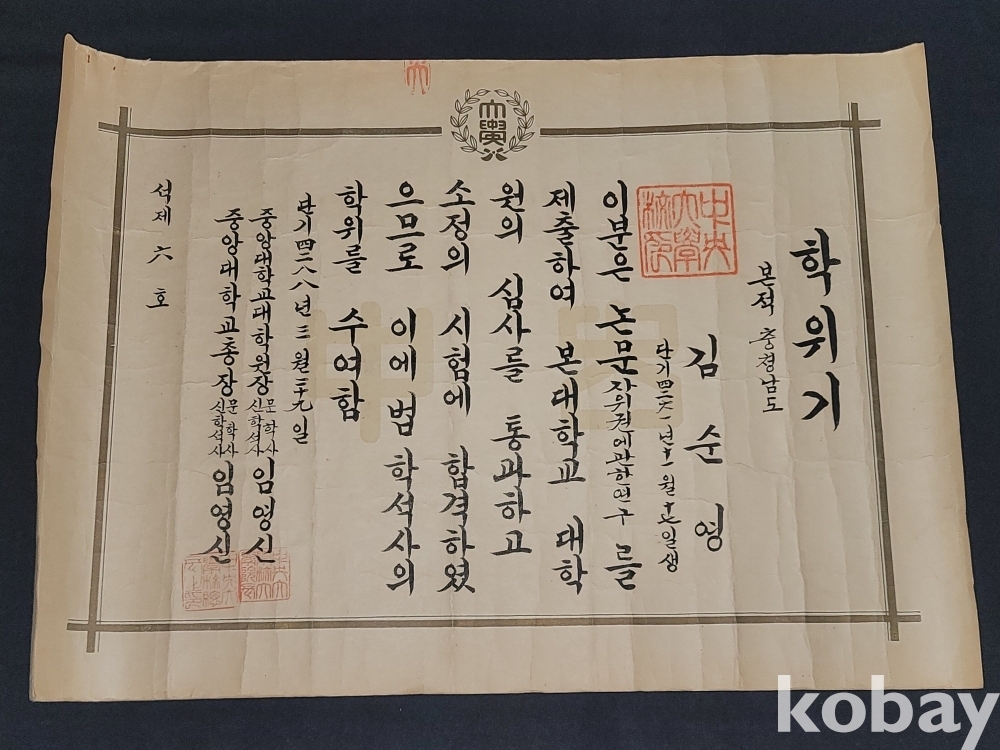 大學
학위기
본적 충청남도
김순영
단기四二六一년十一월十七일생
이분은 논문 자위권에관한연구 를
제출하여 본대학교 대학
원의 심사를 통과하고
소정의 시험에 합격하였
으므로 이에 법학석사의
학위를 수여함
단기四二八八년三월二十九일
중앙대학교대학원장 문학사 신학석사 임영신
중앙대학교총장 문학사 신학석사 임영신
석제 六 호
中央
大學
校印
kobay